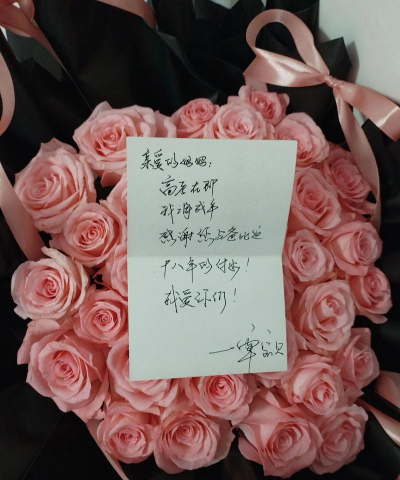 亲爱的妈妈:
高考在即
我将成年
感谢您与爸爸
十八年的付出!
我爱你们!